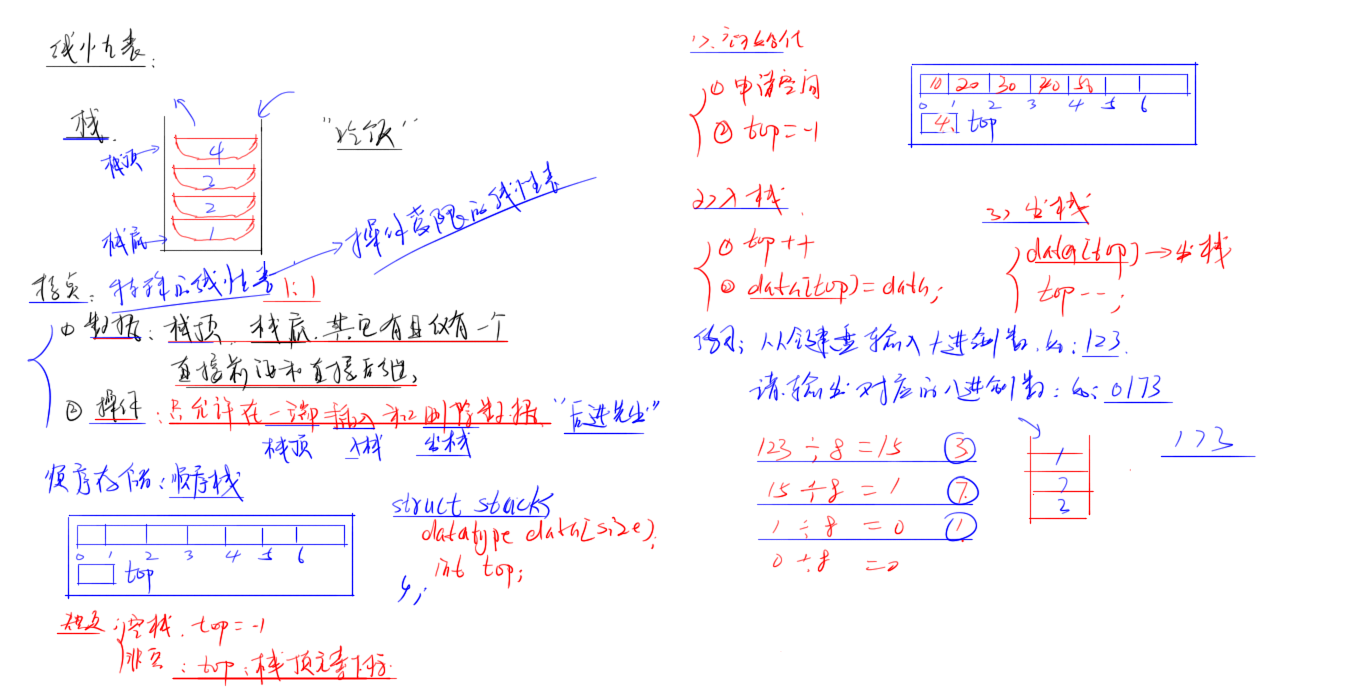 线性表:
栈
4
3
2
1
栈顶
栈底
"吃饭"
操作受限的线性表
特点: 特殊的线性表 1:1
① 数据: 栈顶、栈底.其它有且仅有一个
直接前驱和直接后继,
② 操作: 只允许在一端插入和删除数据、"后进先出"
栈顶 入栈 出栈
顺序存储: 顺序栈
0 1 2 3 4 5 6
top
struct stacks
datatype data[size];
int top;
};
特点: 空栈. top=-1
非空: top: 栈顶元素下标.
1>.初始化
① 申请空间
② top=-1
10 20 30 40 50
0 1 2 3 4 5 6
4 top
2> 入栈
① top++
② data[top]=data;
3> 出栈
data[top]→出栈
top--;
例: 从键盘输入十进制数.如: 123.
请输出对应的八进制数: 如: 0173
123÷8=15 ③
15÷8=1 ⑦
1÷8=0 ①
0÷8=0
1
7
3
173